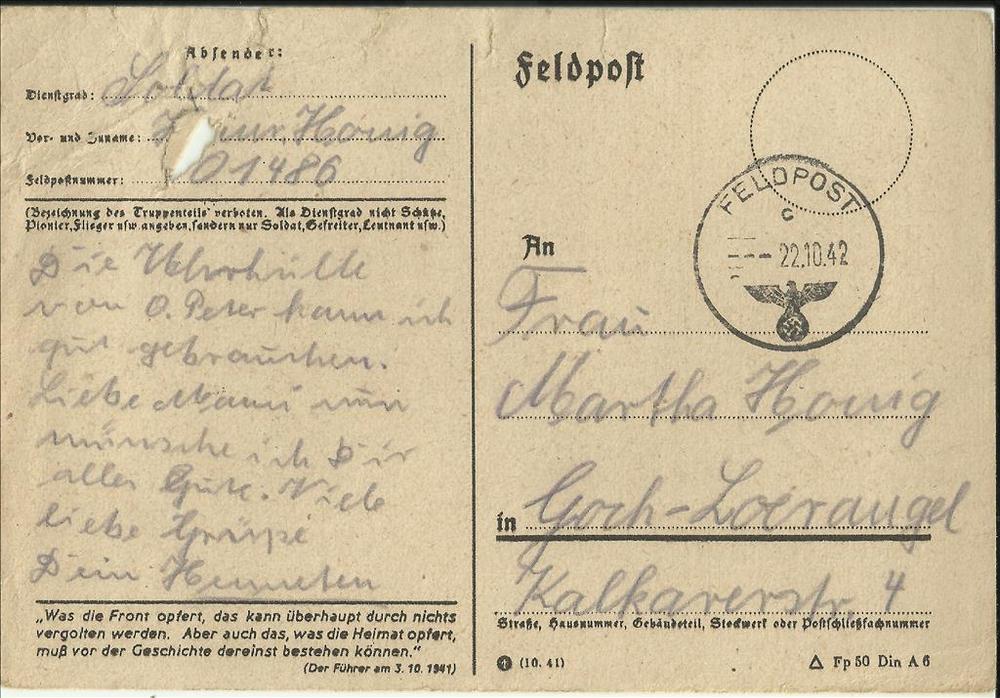 Absender:
Dienstgrad: Soldat
Vor- und Zuname: Honig
Feldpostnummer: 01486
(Bezeichnung des Truppenteils verboten. Als Dienstgrad nicht Schütze,
Pionier, Flieger usw. angeben, sondern nur Soldat, Gefreiter, Leutnant usw.)
Die Uhrhülle
von O. Peter kann ich
gut gebrauchen.
Liebe Mami nun
wünsche ich Dir
alles Gute. Viele
liebe Grüße
Dein
„Was die Front opfert, das kann überhaupt durch nichts
vergolten werden. Aber auch das, was die Heimat opfert,
muß vor der Geschichte dereinst bestehen können.“
(Der Führer am 3. 10. 1941)
Feldpost
FELDPOST
c
22.10.42
An
Frau
Martha Honig
in Goch-
Kalkarerstr. 4
Straße, Hausnummer, Gebäudeteil, Stockwerk oder Postschließfachnummer
(10. 41)
Fp 50 Din A 6